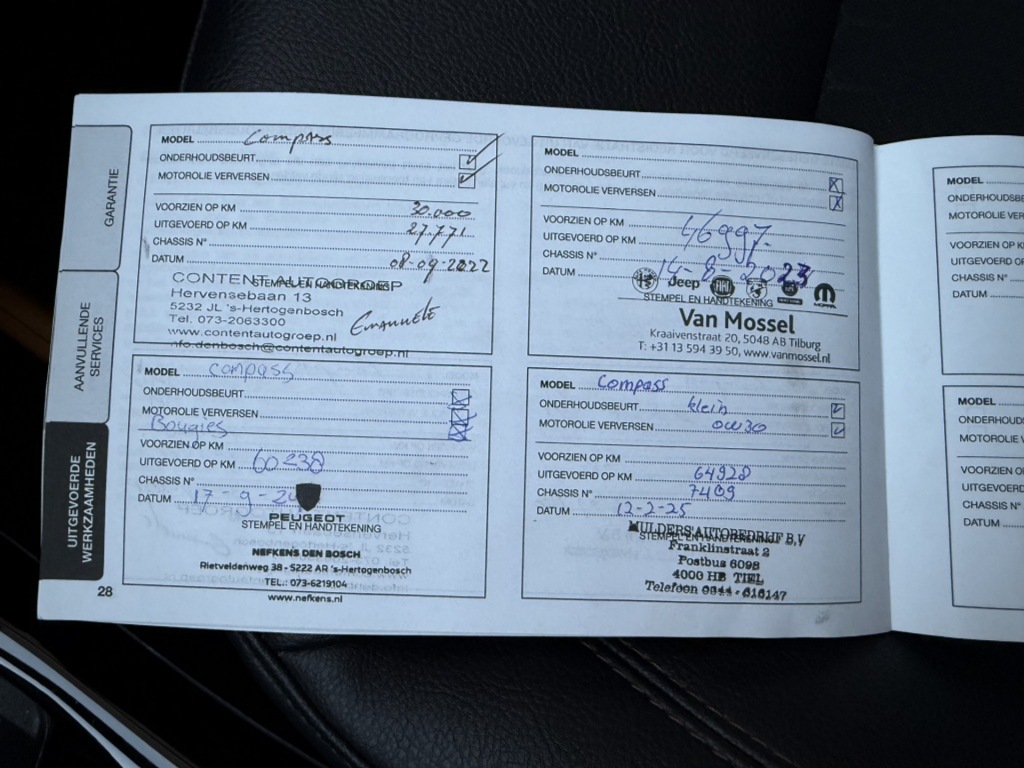 GARANTIE
AANVULLENDE
SERVICES
UITGEVOERDE
WERKZAAMHEDEN
28
MODEL Compass
ONDERHOUDSBEURT
MOTOROLIE VERVERSEN
VOORZIEN OP KM 30.000
UITGEVOERD OP KM 27.771
CHASSIS N°
DATUM 08-09-2022
CONTENT AUTOGROEP
STEMPEL EN HANDTEKENING
Hervensebaan 13
5232 JL 's-Hertogenbosch
Tel. 073-2063300
Emanuele
www.contentautogroep.nl
nfo.denbosch@contentautogroep.nl
MODEL
ONDERHOUDSBEURT
MOTOROLIE VERVERSEN
VOORZIEN OP KM
UITGEVOERD OP KM 46997.
CHASSIS N°
DATUM 14-8-2023
Jeep
FIAT
MOPAR
STEMPEL EN HANDTEKENING
Van Mossel
Kraaivenstraat 20, 5048 AB Tilburg
T: +31 13 594 39 50, www.vanmossel.nl
MODEL compass
ONDERHOUDSBEURT
MOTOROLIE VERVERSEN
Bougies
VOORZIEN OP KM
UITGEVOERD OP KM 60238
CHASSIS N°
DATUM 17-9-24
PEUGEOT
STEMPEL EN HANDTEKENING
NEFKENS DEN BOSCH
Rietveldenweg 38 - 5222 AR 's-Hertogenbosch
TEL.: 073-6219104
www.nefkens.nl
MODEL Compass
ONDERHOUDSBEURT klein
MOTOROLIE VERVERSEN 0W30
VOORZIEN OP KM
UITGEVOERD OP KM 64928
CHASSIS N° 7409
DATUM 12-2-25
MULDERS AUTOBEDRIJF B.V.
STEMPEL EN HANDTEKENING
Franklinstraat 2
Postbus 6098
4000 HB TIEL
Telefoon 0344 - 616147
MODEL
ONDERHOUDSBE
MOTOROLIE VER
VOORZIEN OP K
UITGEVOERD OP
CHASSIS N°
DATUM
MODEL
ONDERHOUD
MOTOROLIE V
VOORZIEN O
UITGEVOERD
CHASSIS N°
DATUM